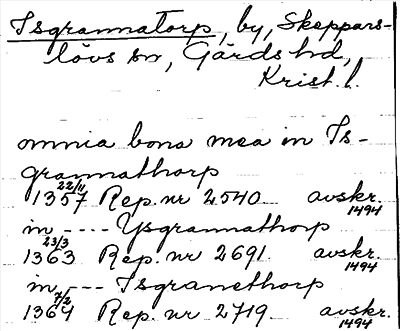 Isgrannatorp, by, Skeppars-
lövs sn, Gärds hd,
Krist. l.
omnia bona mea in Is-
grannathorp
1357 22/11 Rep. nr 2540 avskr. 1494
in ---- Ysgrannathorp
1363 23/3 Rep. nr 2691 avskr. 1494
in --- Isgranethorp
1364 7/2 Rep. nr 2719 avskr. 1494